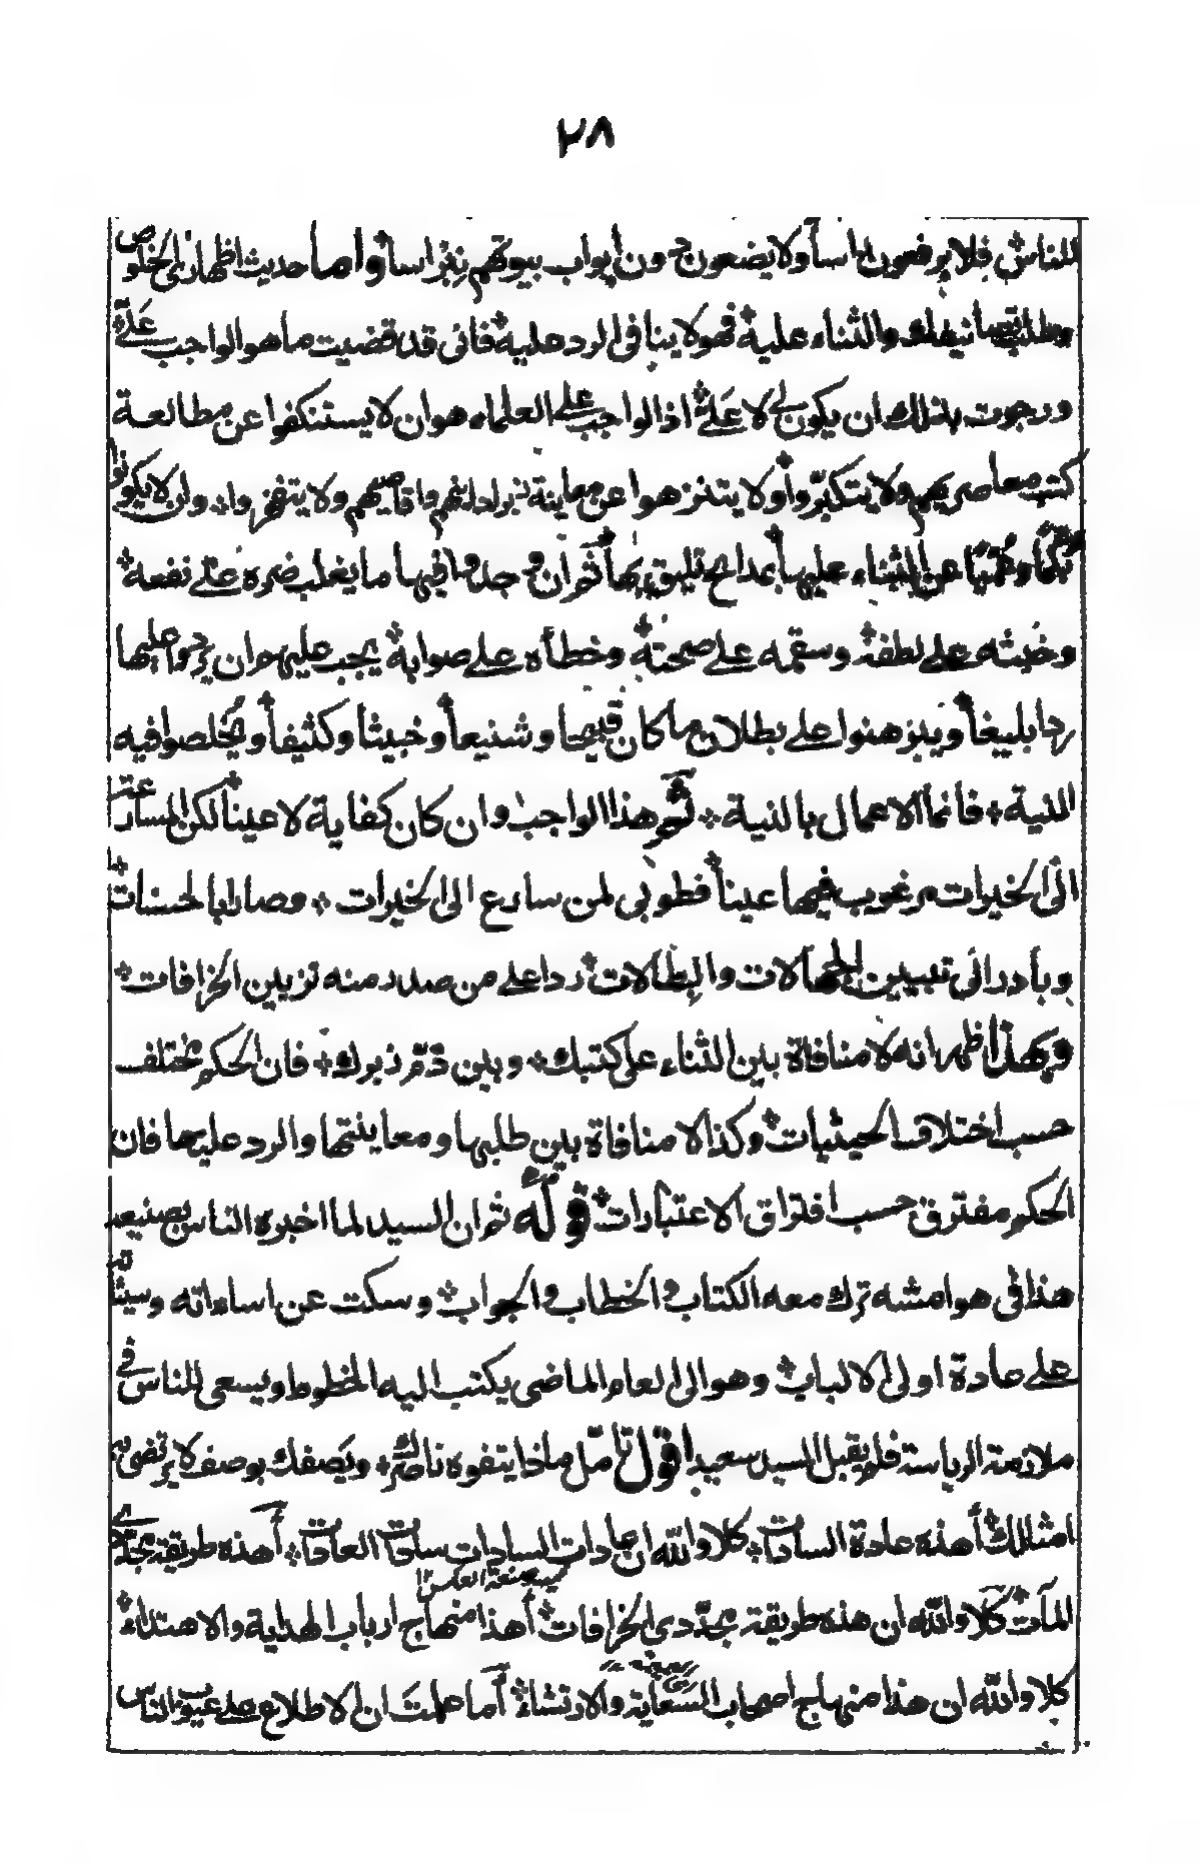 ٢٨
للناس فلا يرفعون رأسا ولا يضعون دون ابواب بيوتهم نبراسا واما حديث اظهاري الخلوص
وطلب تصانيفك والثناء عليه فهو لا ينافي الرد عليه فاني قد قضيت ما هو الواجب علي
ورجوت بذلك ان يكون لي لا علي اذ الواجب على العلماء هوان لا يستنكفوا عن مطالعة
كتب معاصريهم ولا يتكبروا ولا يتنزهوا عن معاينة زبر ادانيهم واقاصيهم ولا يتفخروا وان لا يكونوا
بكما وعميا عن الثناء عليها بمدائح تليق بها ثم ان وجدوا فيها ما يغلب ضره على نفعه
وخبثه على لطفه وسقمه على صحته وخطأه على صوابه يجب عليهم ان يردوا عليها
ردا بليغا ويبرهنوا على بطلان ما كان قبيحا وشنيعا وخبيثا وكثيفا ويخلصوا فيه
النية فانما الاعمال بالنية ثم هذا الواجب وان كان كفاية لا عينا لكن المسارعة
الى الخيرات مرغوب فيها عينا فطوبى لمن سارع الى الخيرات وصار بالحسنات
وبادر الى تبيين الجهالات والبطالات ردا على من صدر منه تزيين الخرافات
وبهذا ظهر انه لا منافاة بين الثناء على كتبك وبين ذم زبرك فان الحكم مختلف
حسب اختلاف الحيثيات وكذا لا منافاة بين طلبها ومعاينتها والرد عليها فان
الحكم مفترق حسب افتراق الاعتبارات قوله ثم ان السيد لما اخبره الناس بصنيعه
هذا في هوامشه ترك معه الكتاب والخطاب والجواب وسكت عن اساءاته وسيئاته
على عادة اولى الالباب وهو الى العام الماضي يكتب اليه الخطوط ويسعى للناس في
ملازمة الرياسة فلم يقبل السيد سعيه اقول تأمل ماذا يتفوه ناصرك ويصفك بوصف لا يرتضى به
امثالك أهذه عادة السادات كلا والله ان عادات السادات سادات العادات أهذه طريقة مجددي
المآت كلا والله ان هذه طريقة مجددي الخرافات أهذا منهاج ارباب الهداية والاهتداء
كلا والله ان هذا منهاج اصحاب السعاية والارتشاء أما علمت ان الاطلاع على عيوب الناس